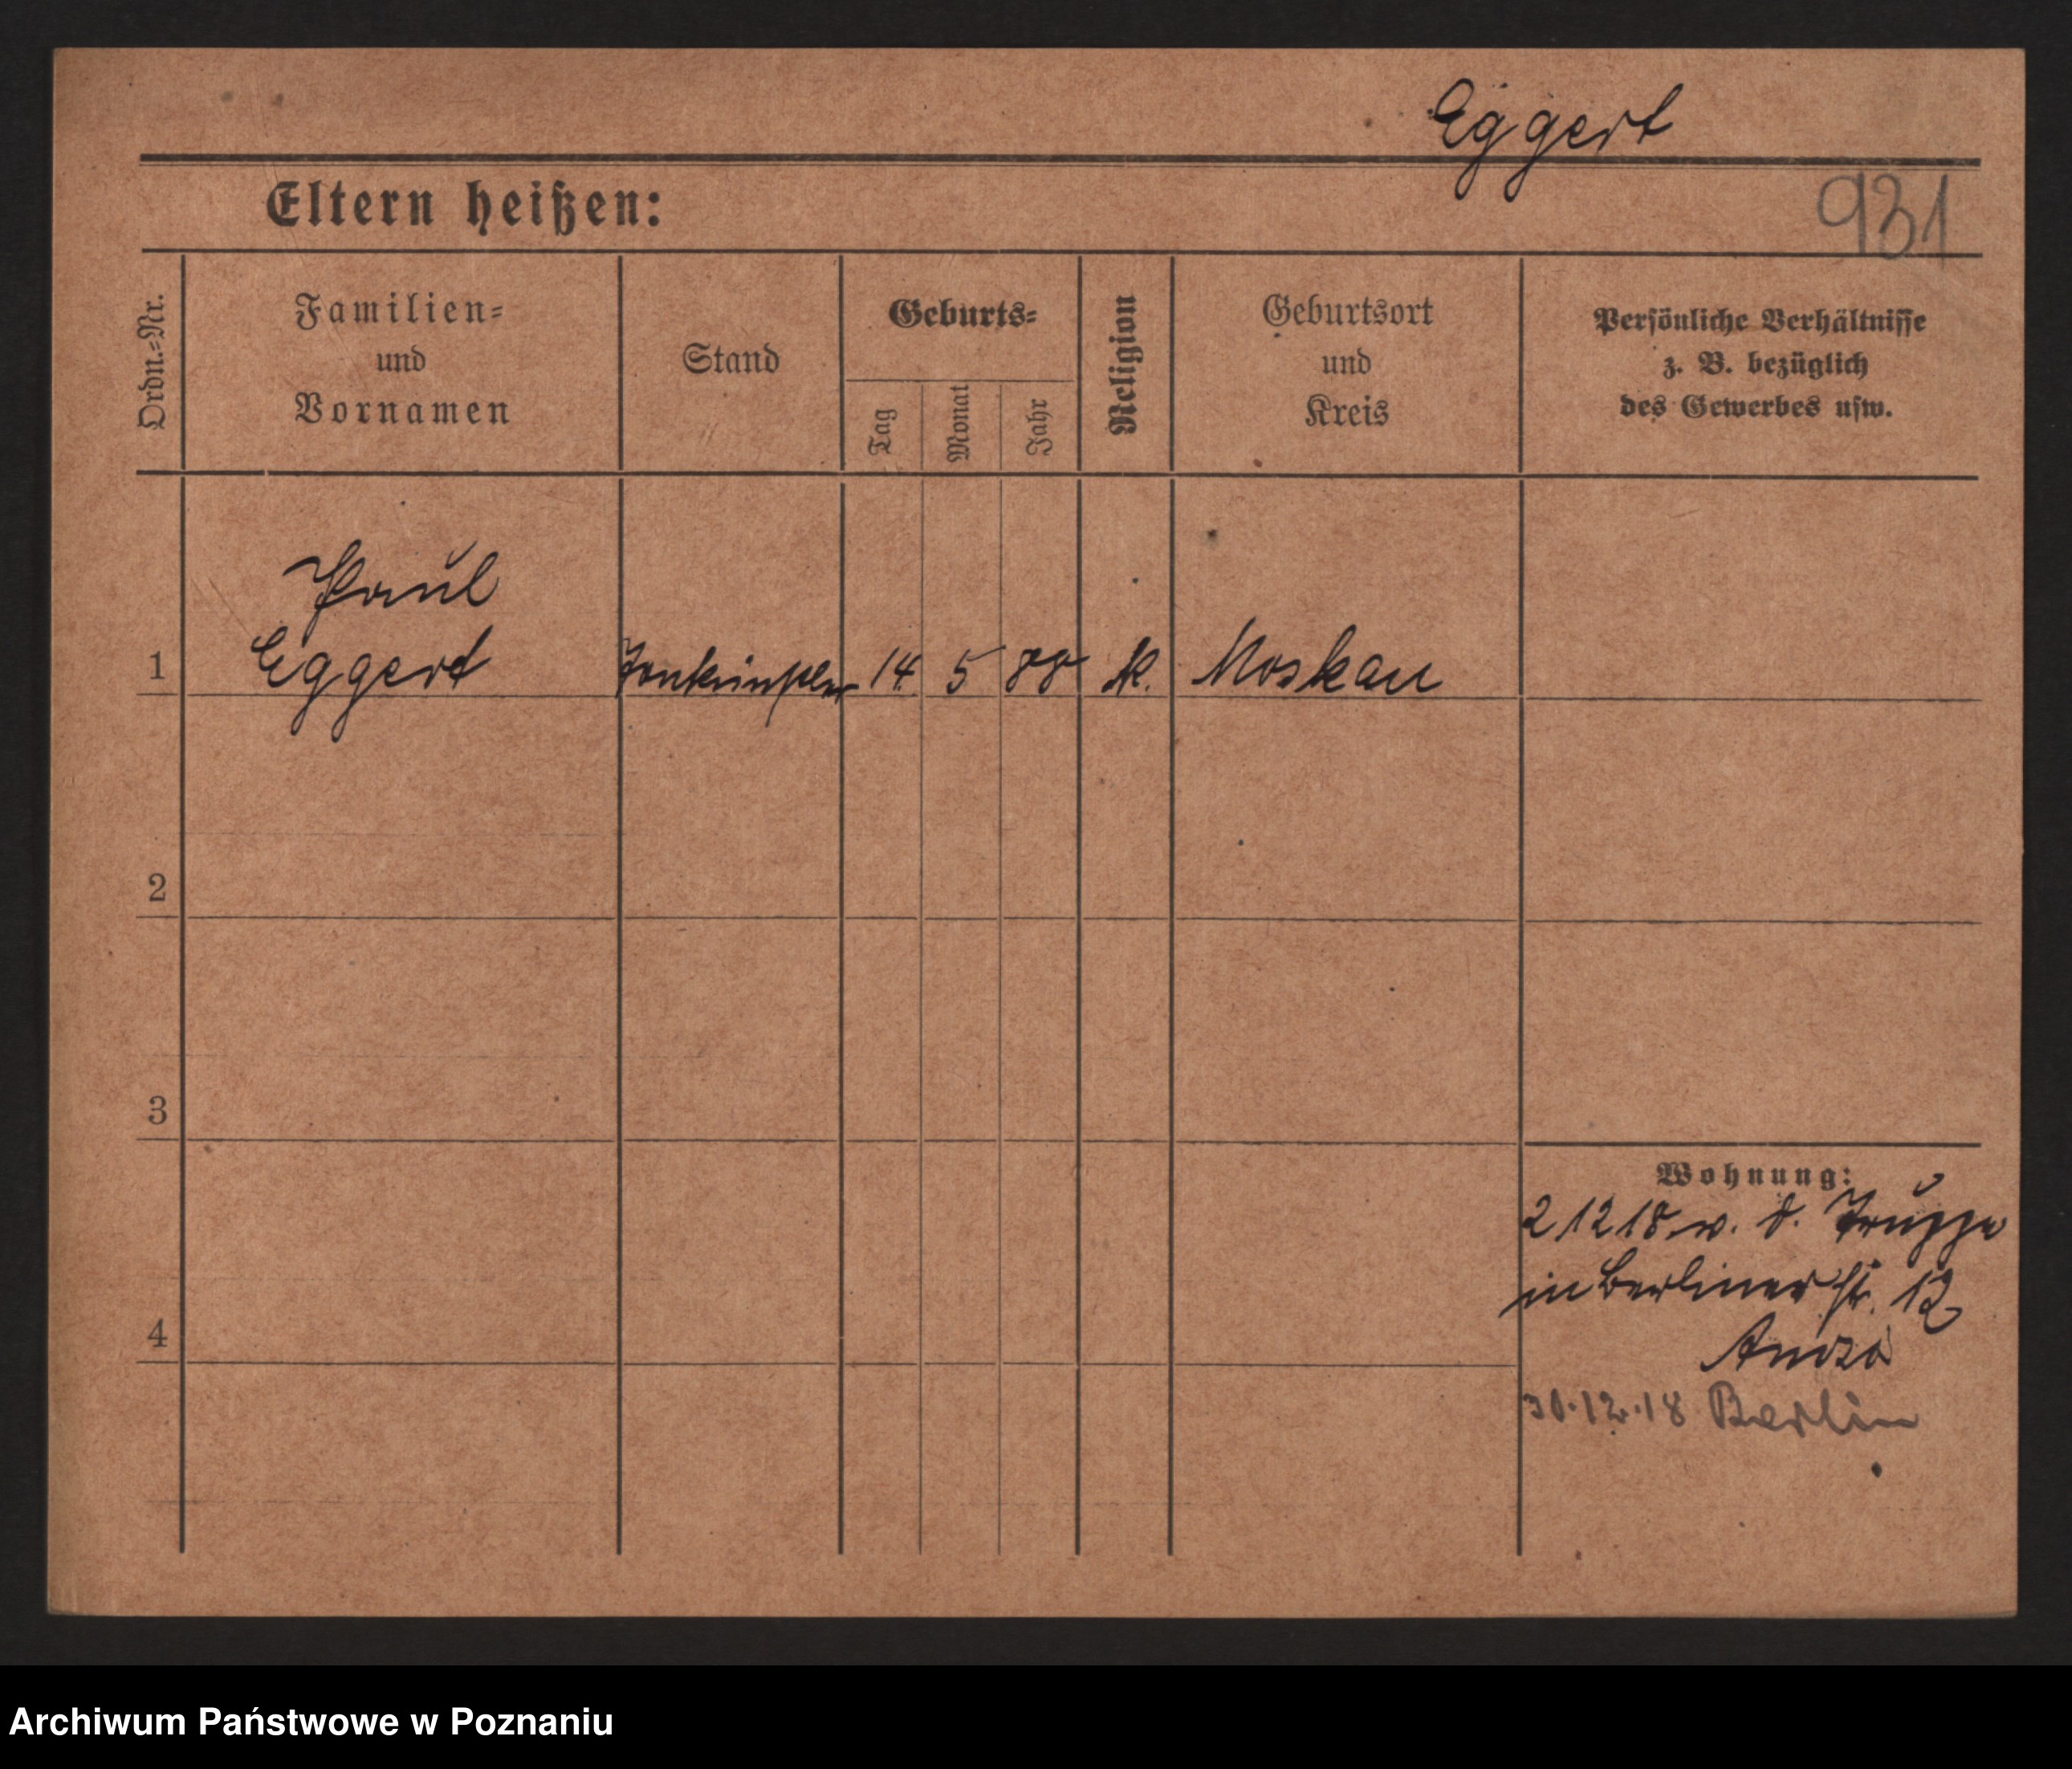 Eggert
Eltern heißen:
931
Ordn.-Nr.
Familien-
und
Vornamen
Stand
Geburts-
Tag
Monat
Jahr
Religion
Geburtsort
und
Kreis
Persönliche Verhältnisse
z. B. bezüglich
des Gewerbes usw.
Paul
1 Eggert 14. 5 88 K. Moskau
2
3
Wohnung:
2 12 18 v. d. Truppe
in Berliner str. 12
4
30.12.18 Berlin
Archiwum Państwowe w Poznaniu